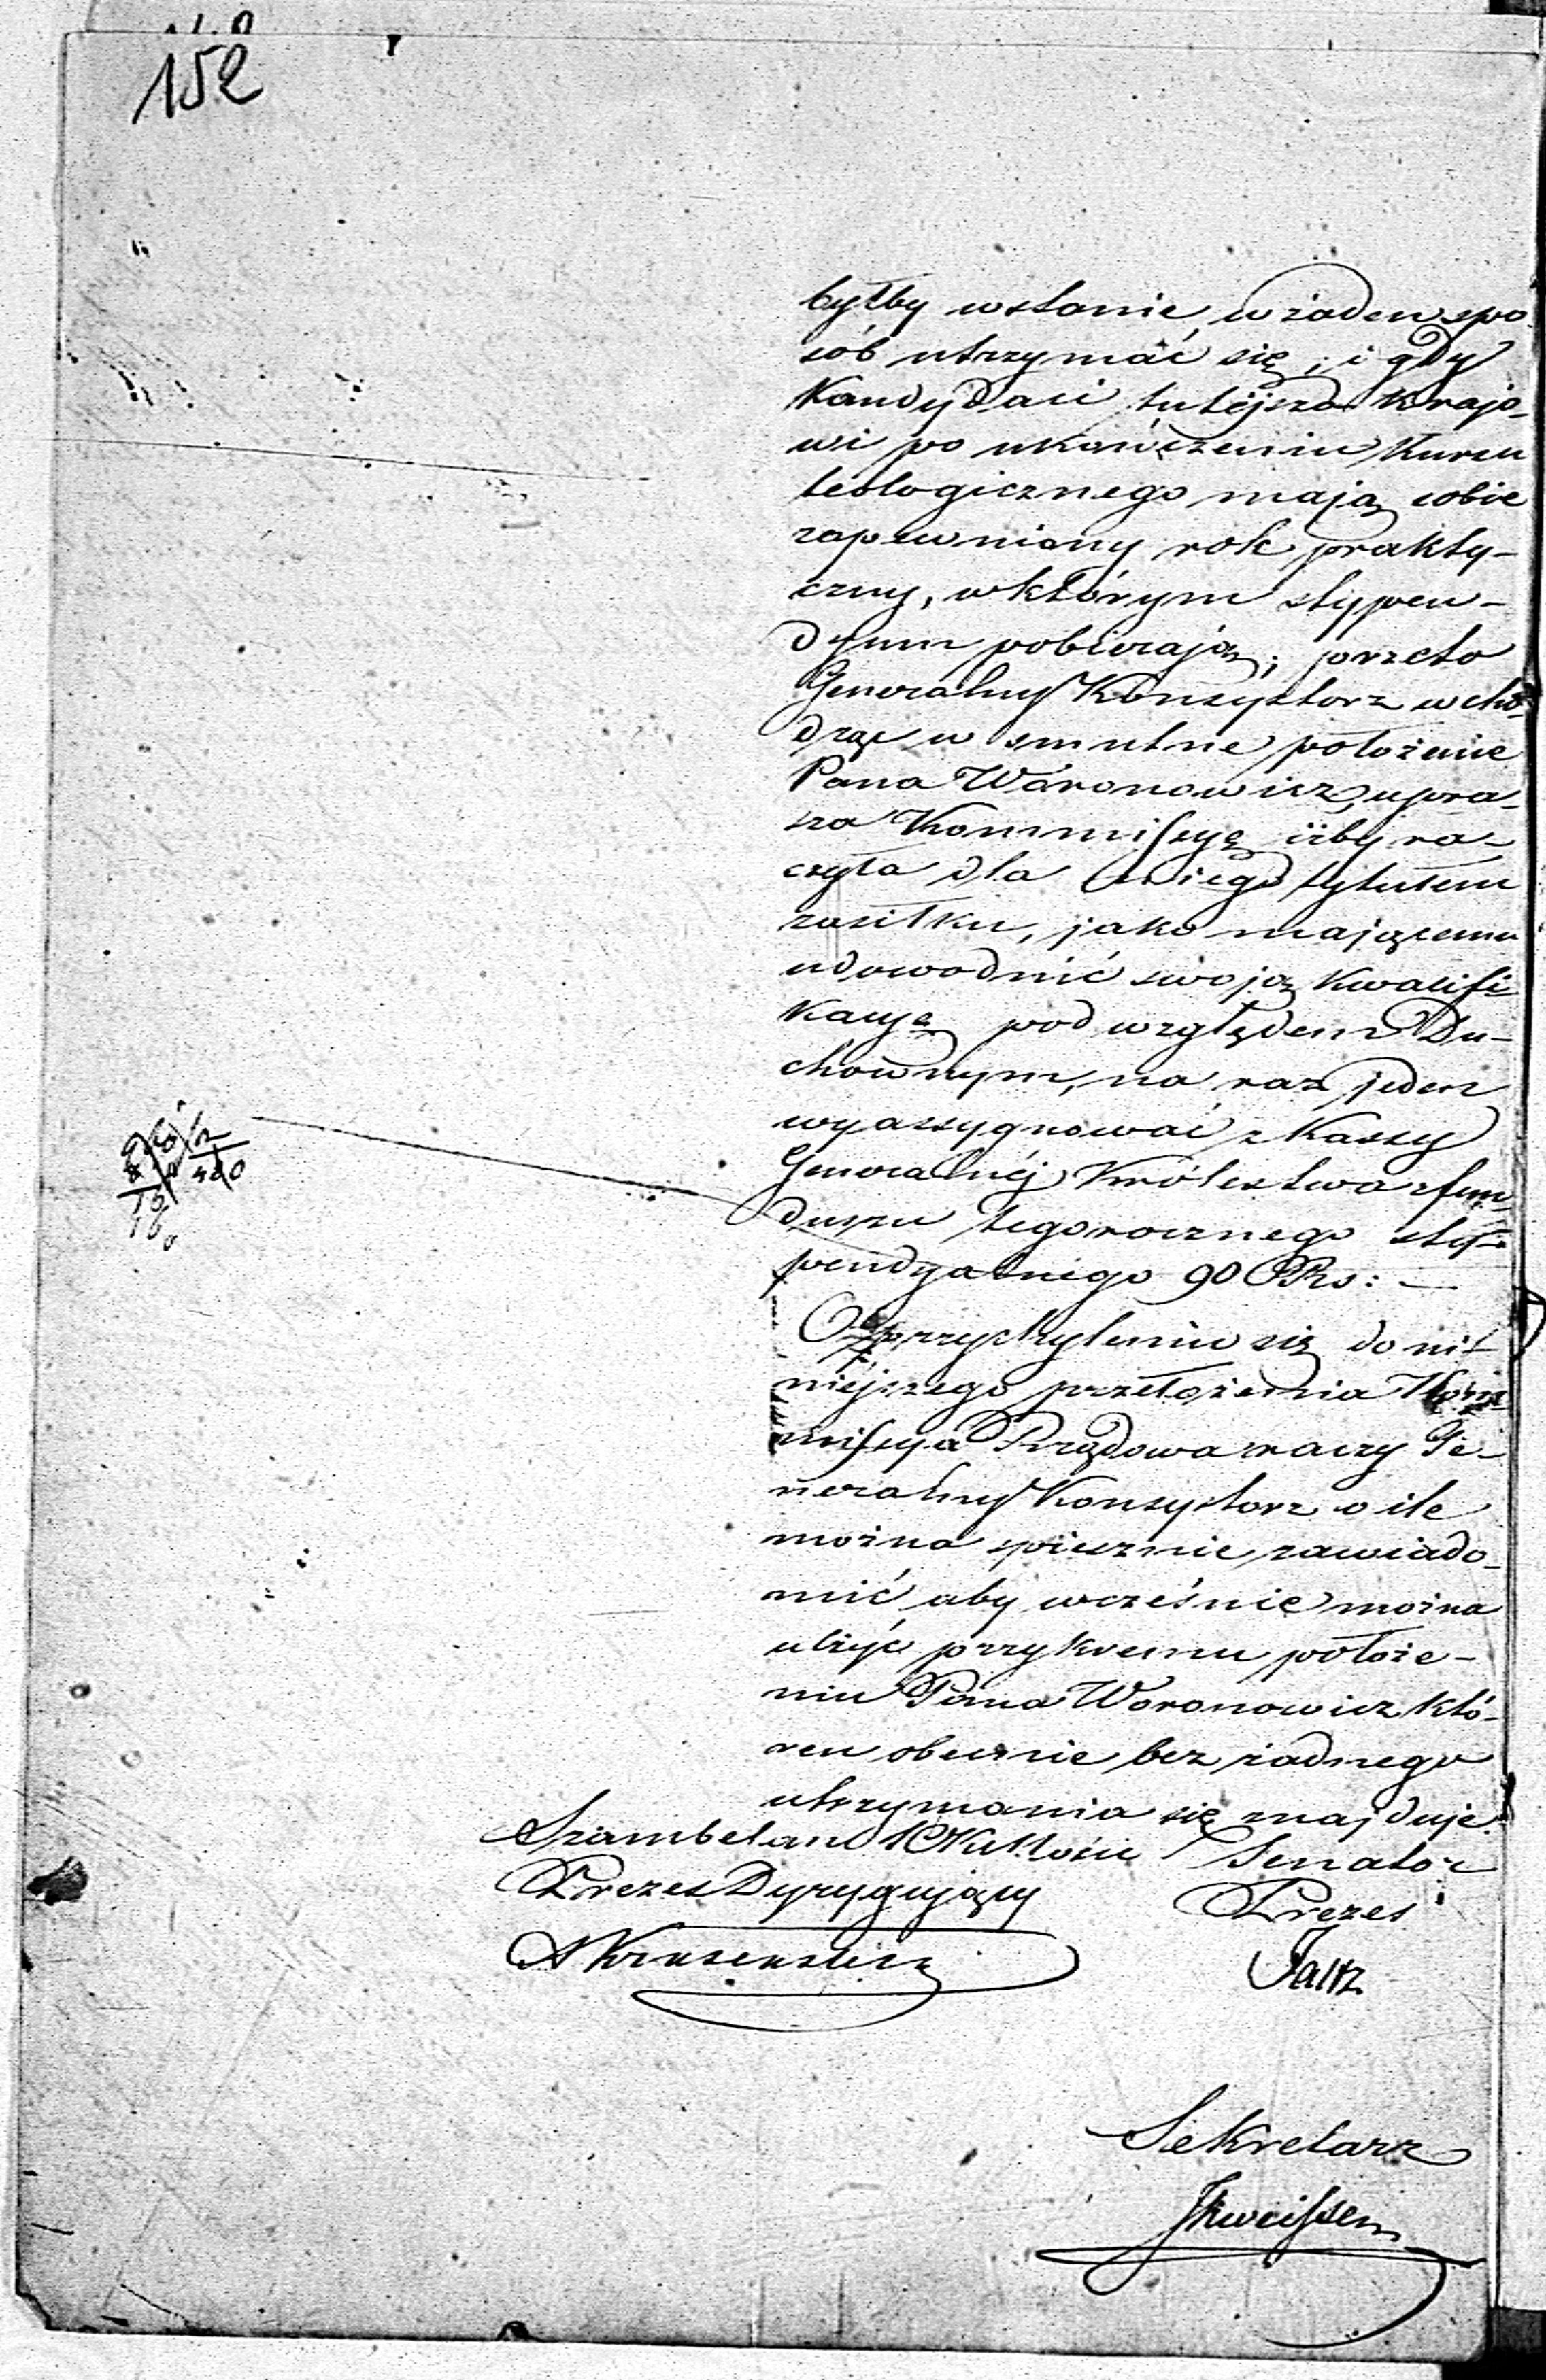 152
byłby wstanie w żaden spo-
sób utrzymać się; i gdy
Kandydaci tutejsze Krajo-
wi po ukończeniu Kursu
teologicznego mają sobie
zapewniony rok prakty-
czny, w którym stypen-
dyum pobierają; przeto
Generalny Konsystorz wcho-
dząc w smutne położenie
Pana Woronowicz, upra-
sza Kommissyę iżby ra-
czyła dla niego tytułem
zasiłku, jako mającemu
udowodnić swoją Kwalifi
Kacyę pod względem Du-
chownym, na raz jeden
wyassygnować z Kassy
Generalnéj Królestwa z fun-
duszu tegorocznego sty-
pendyalnego 90 Rs: —
O przychyleniu się do ni-
niejszego przełożenia Kom-
missya Rządowa raczy Ge-
neralny Konsystorz o ile
można spiesznie zawiado-
mić aby wcześnie można
ulżyć przykremu położe-
niu Pana Woronowicz któ-
ren obecnie bez żadnego
utrzymania się znajduje.
Szambelan Senator
Prezes Dyrygujący Prezes
Sekretarz